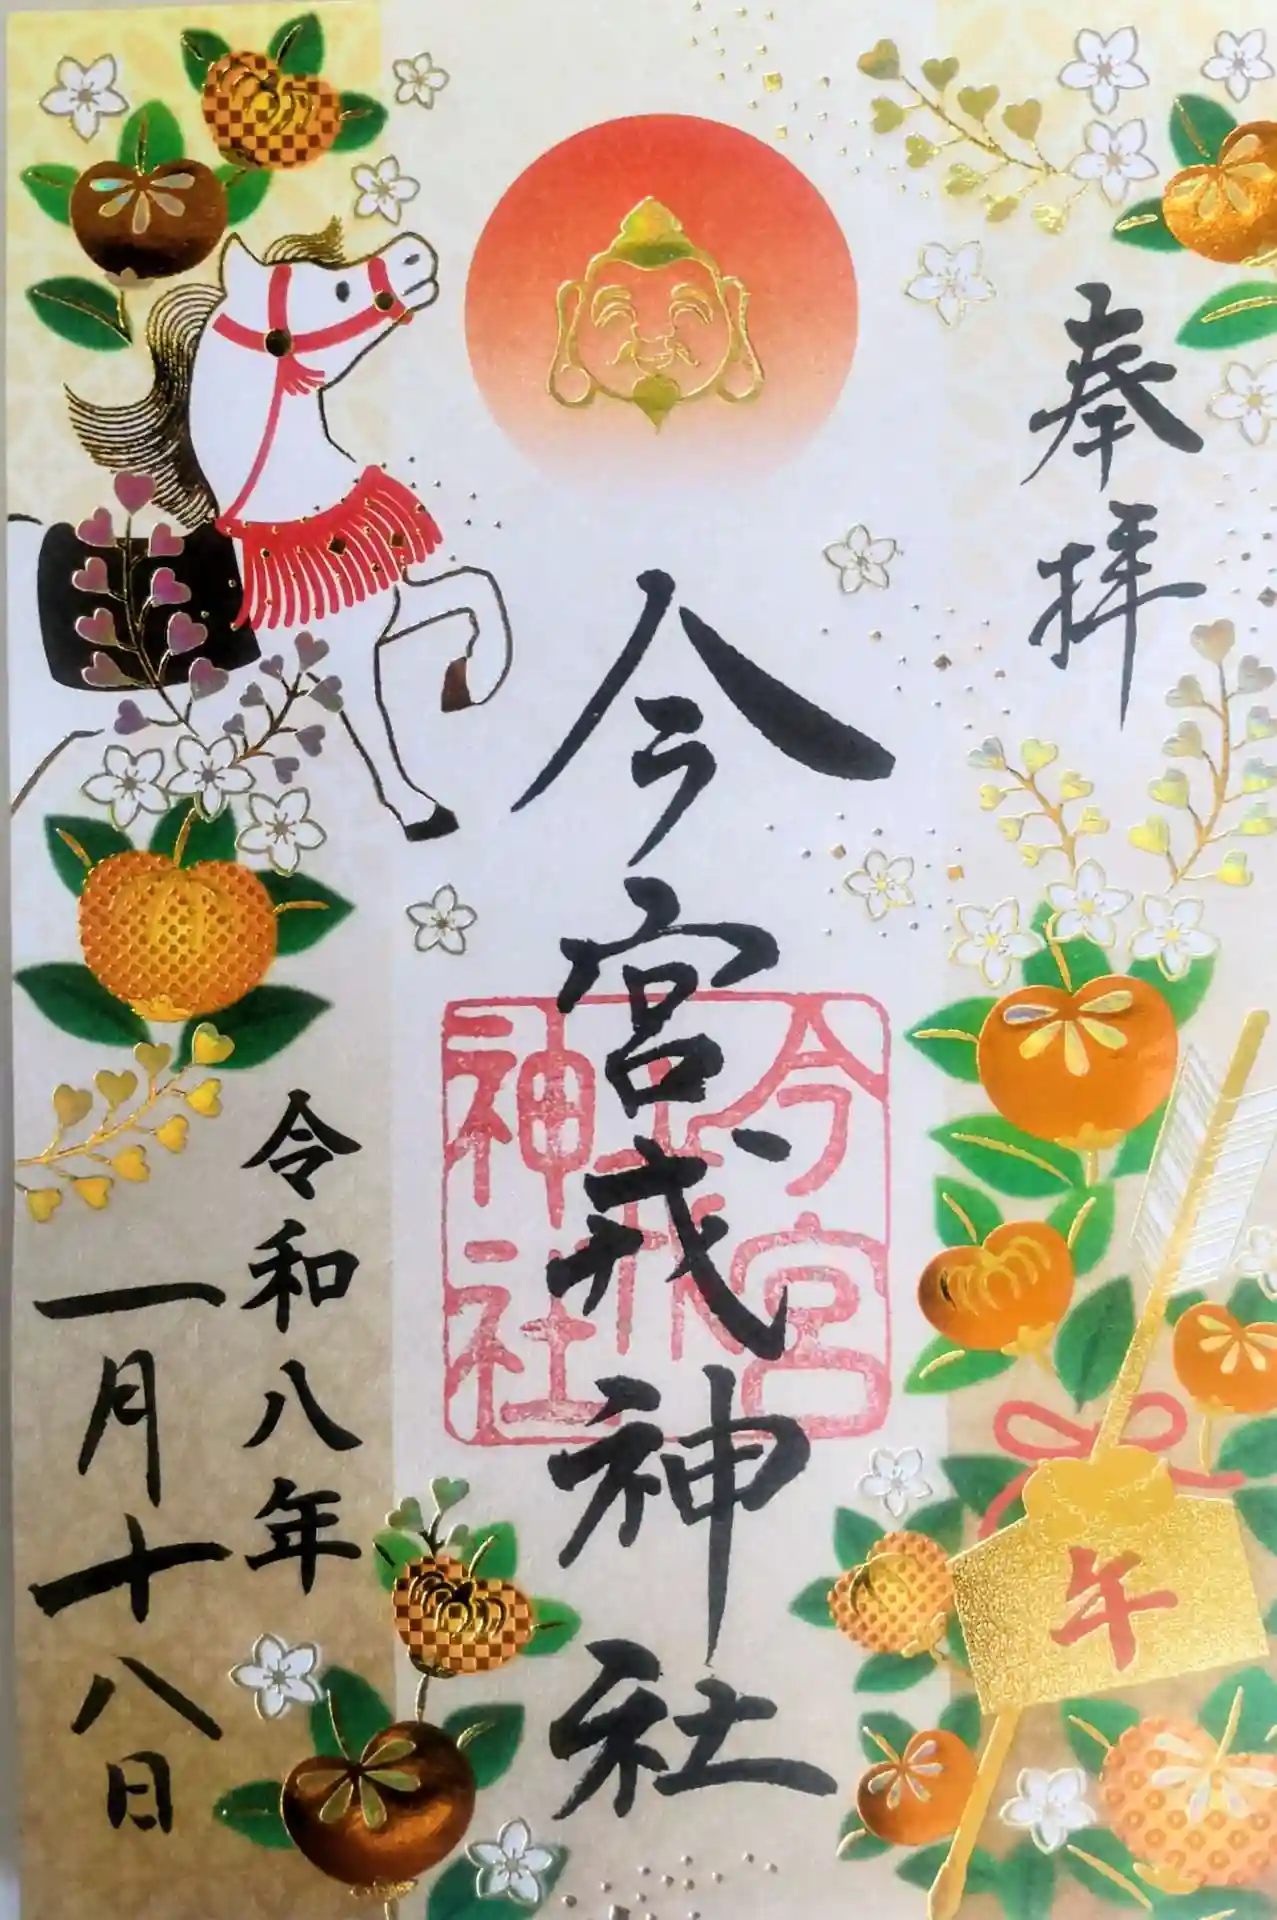 奉拝
今宮戎神社
今宮
戎
神社
令和八年
一月十八日
午